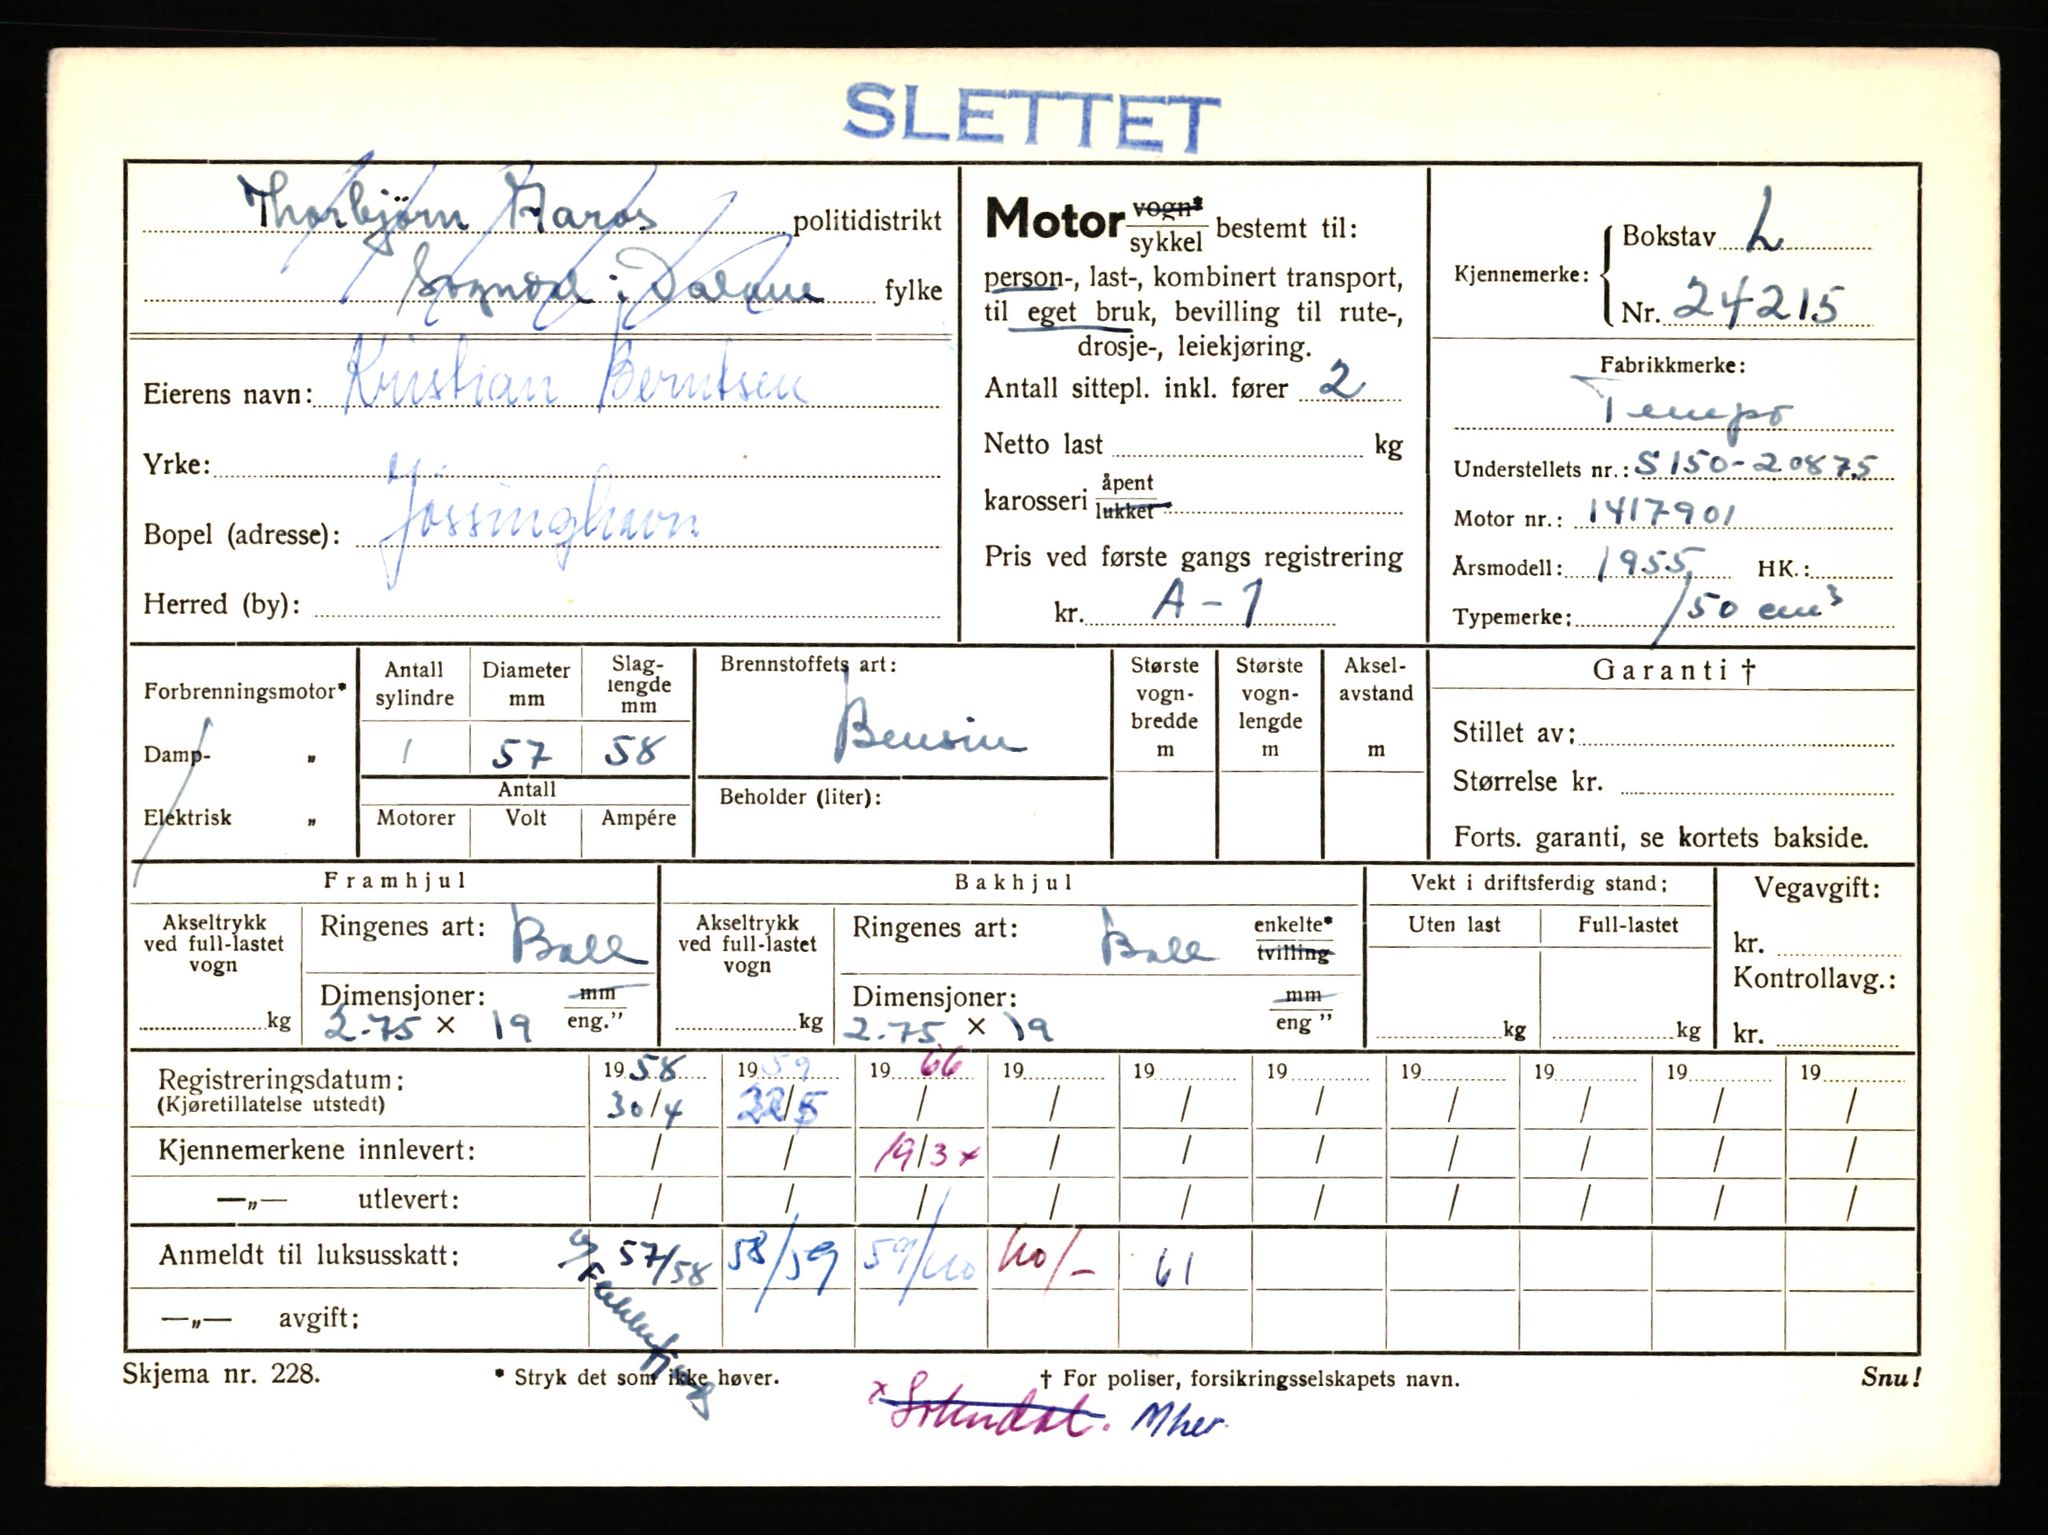 SLETTET
Thorbjörn Aaros politidistrikt
Sogndal i Dalane fylke
Eierens navn: Kristian Berntsen
Yrke:
Bopel (adresse): Jössinghavn
Herred (by):
Motor vogn* sykkel bestemt til:
person-, last-, kombinert transport,
til eget bruk, bevilling til rute-,
drosje-, leiekjøring.
Antall sittepl. inkl. fører 2
Netto last kg
karosseri åpent lukket
Pris ved første gangs registrering
kr. A-1
Kjennemerke: Bokstav L
Nr. 24215
Fabrikkmerke:
Tempo
Understellets nr.: S150-20875
Motor nr.: 1417901
Årsmodell: 1955 HK.:
Typemerke: 150 cm³
Forbrenningsmotor*
Damp- „
Elektrisk „
Antall sylindre Diameter mm Slag-lengde mm
1 57 58
Antall
Motorer Volt Ampére
Brennstoffets art:
Bensin
Beholder (liter):
Største vogn-bredde m
Største vogn-lengde m
Aksel-avstand m
Garanti †
Stillet av:
Størrelse kr.
Forts. garanti, se kortets bakside.
Framhjul
Akseltrykk ved full-lastet vogn kg
Ringenes art: Ball
Dimensjoner: mm eng.”
2.75 × 19
Bakhjul
Akseltrykk ved full-lastet vogn kg
Ringenes art: Ball enkelte* tvilling
Dimensjoner: mm eng ”
2.75 × 19
Vekt i driftsferdig stand:
Uten last Full-lastet
kg kg
Vegavgift:
kr.
Kontrollavg.:
kr.
1958 1959 1966 19 19 19 19 19 19 19
Registreringsdatum: 30/4 22/5 / / / / / / / /
(Kjøretillatelse utstedt)
Kjennemerkene innlevert: / / 19/3 x / / / / / / /
—„— utlevert: / / / / / / / / / /
Anmeldt til luksusskatt: 57/58 58/59 59/60 60/- 61
—„— avgift:
Skjema nr. 228. * Stryk det som ikke høver. † For poliser, forsikringsselskapets navn. Snu!